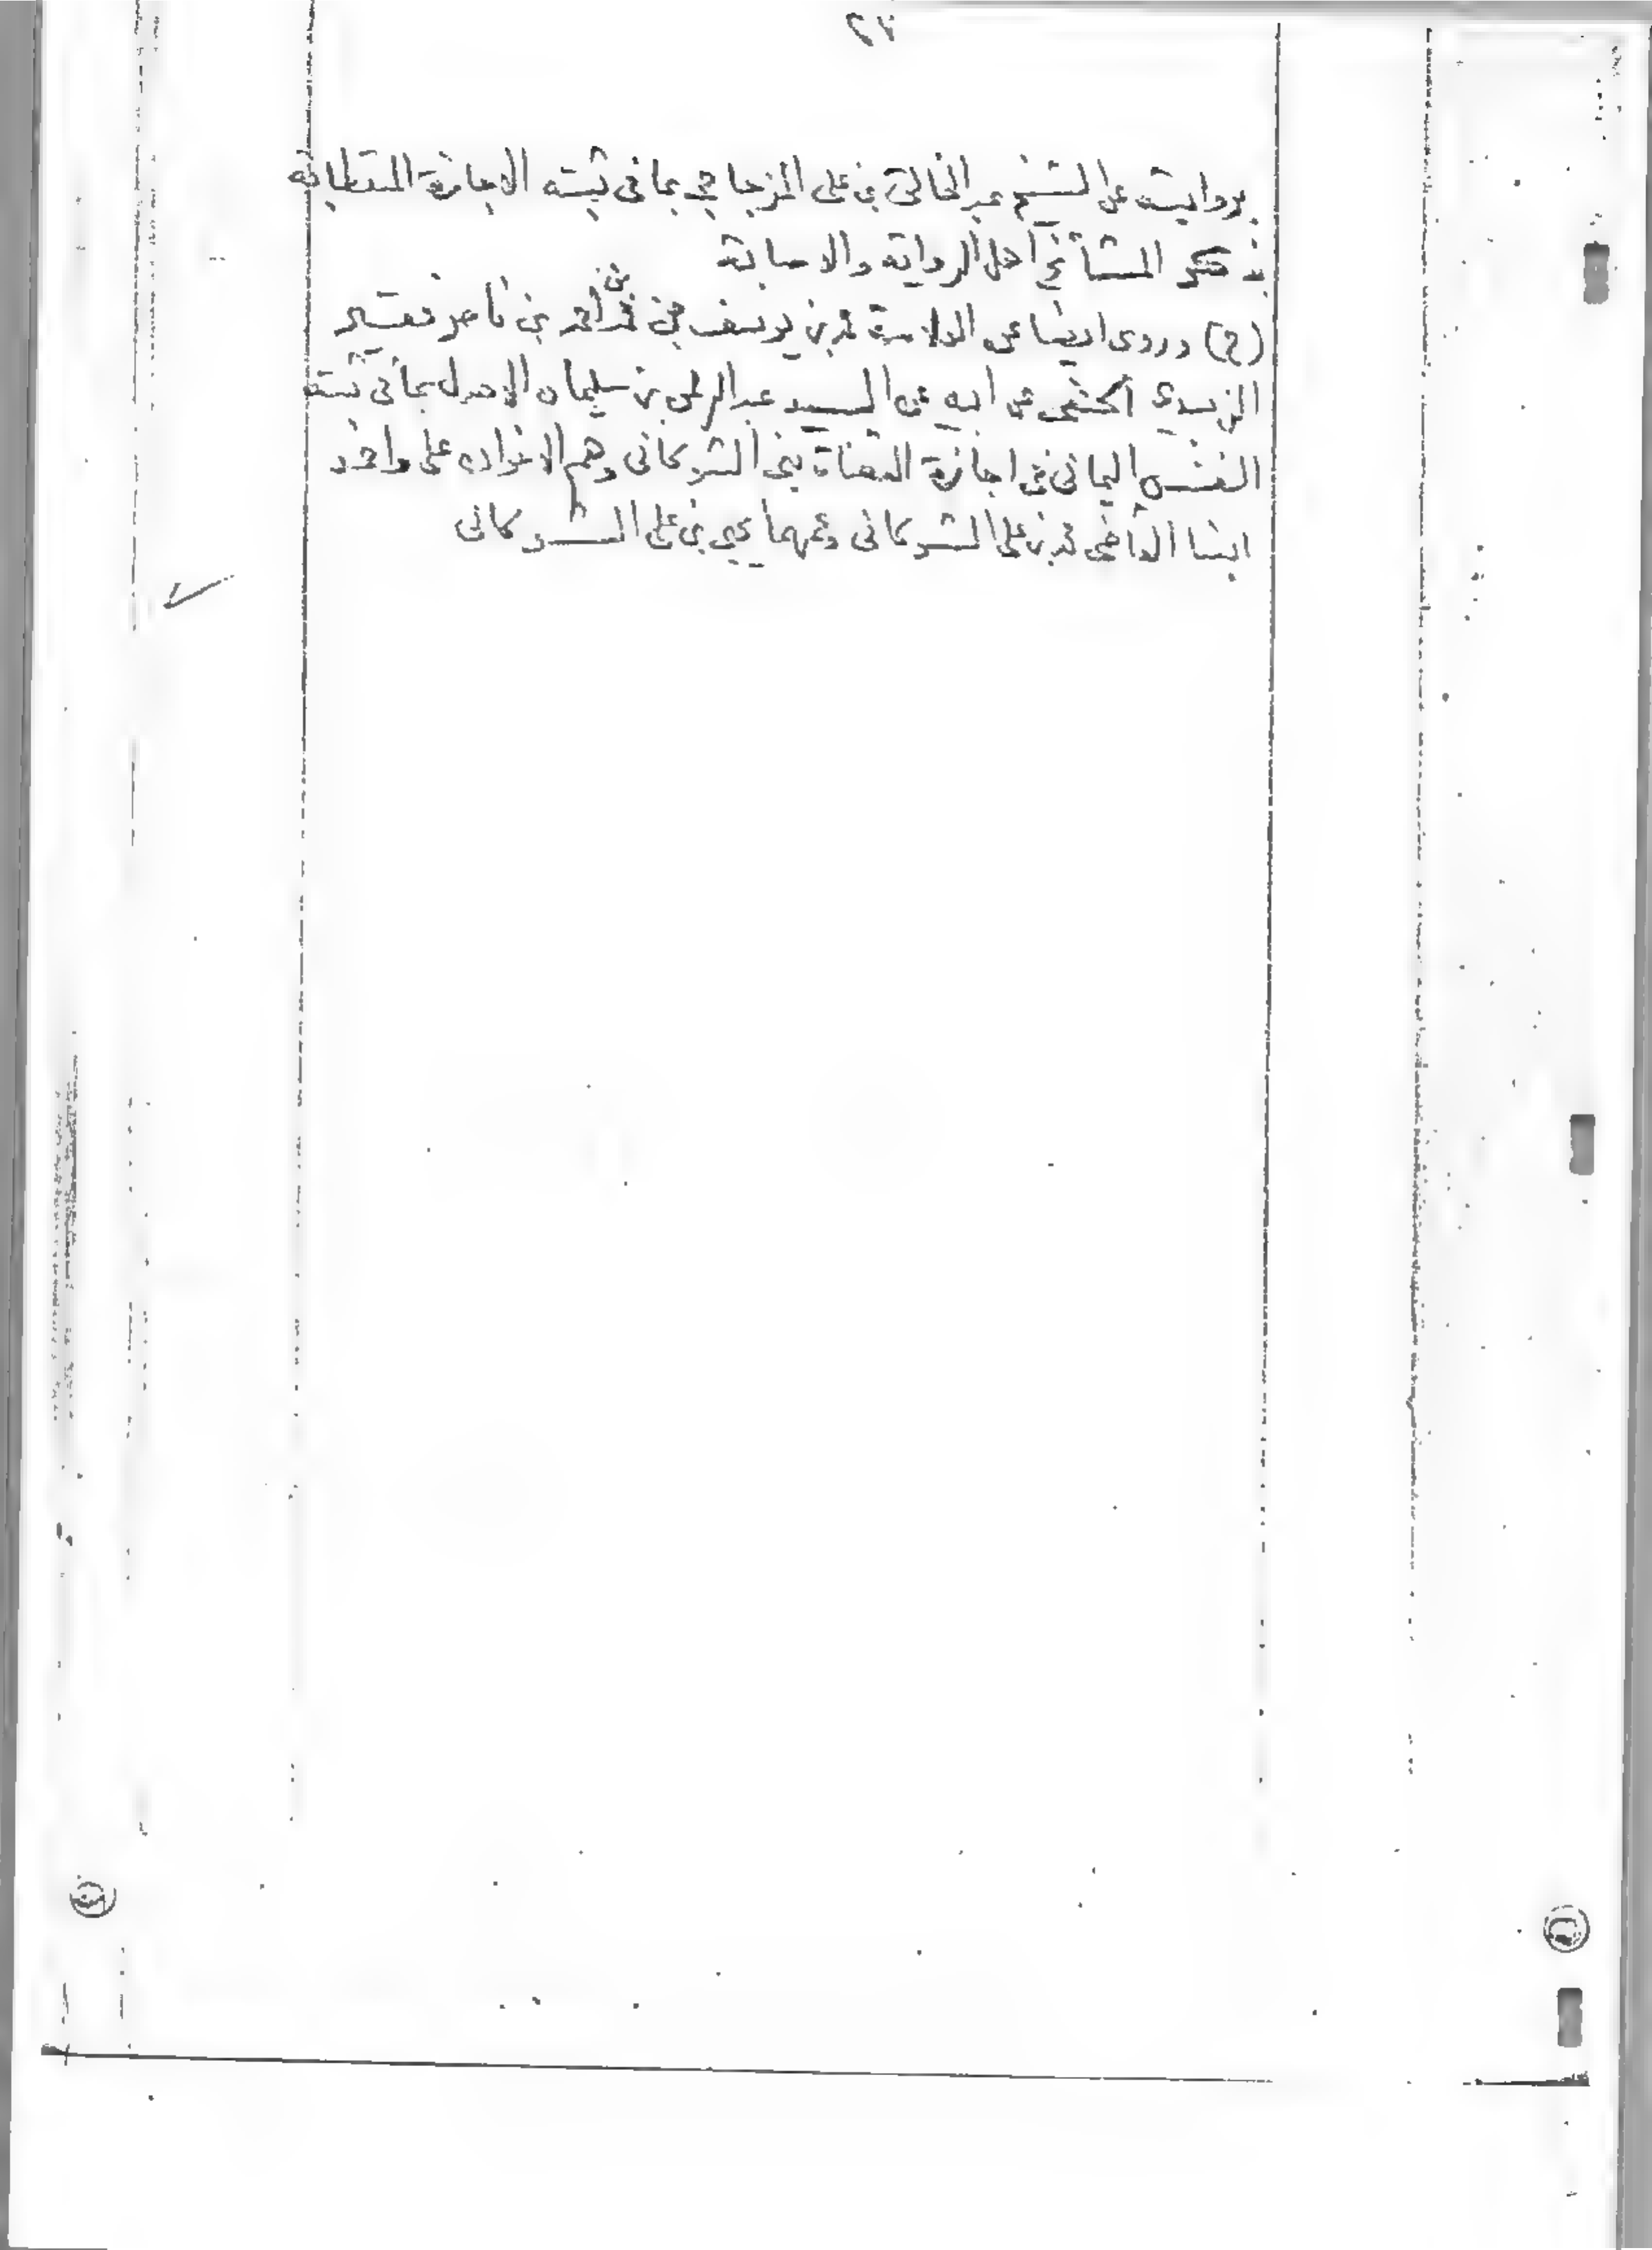 ٢٧
بروايته عن الشيخ عبدالخالق بن على المزجاجى بما فى ثبته الاجازة المستطابه
بذكر المشائخ أهل الرواية والاصابة
(ح) وروى ايضا عن العلامة محمد بن يوسف عن محمد بن احمد بن ناصر
الزبيدى الحنفى عن ابيه عن السيد عبدالرحمن بن سليمان الاهدل بما فى ثبته
النفس اليمانى فى اجازة القضاة بنى الشوكانى وهم الاخوان على واحمد
ابنا القاضى محمد بن على الشوكانى وعمهما يحيى بن على الشوكانى